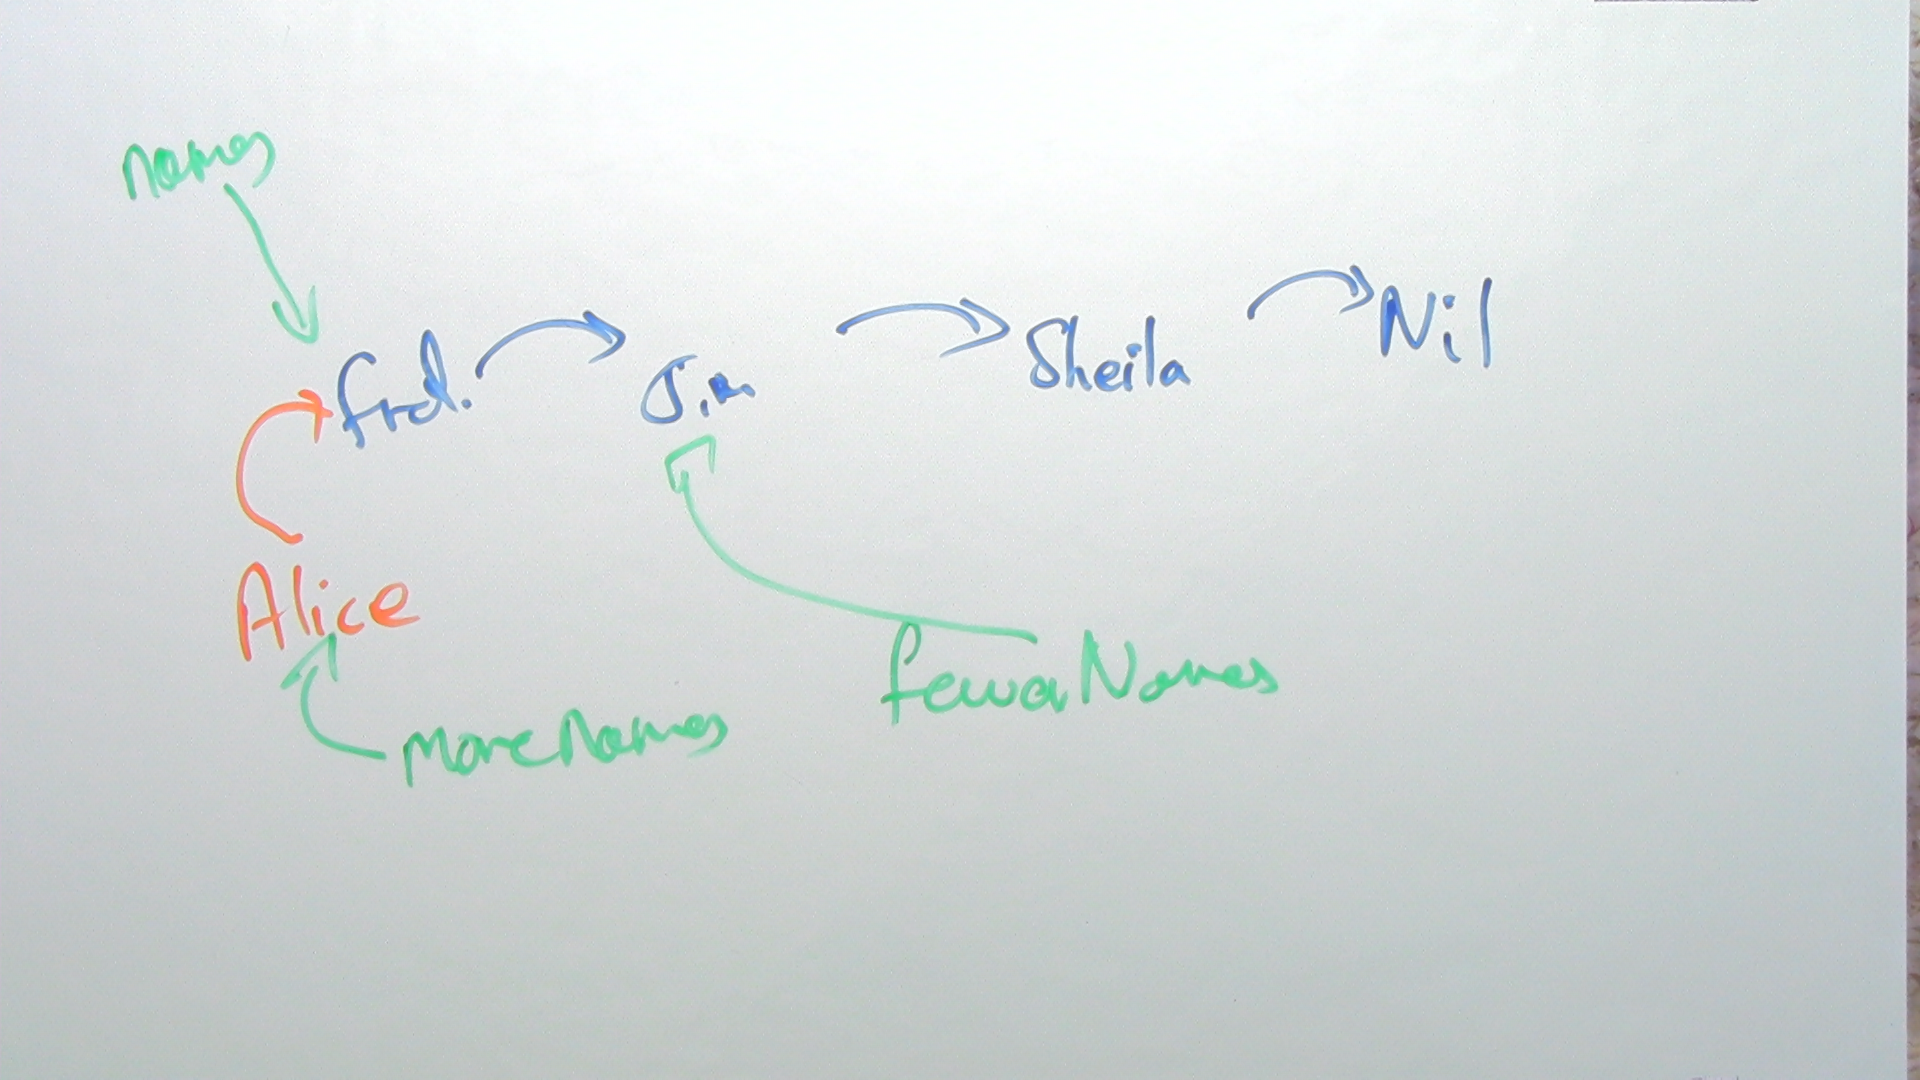 names
Fred.
Jim
Sheila
Nil
Alice
fewerNames
moreNames